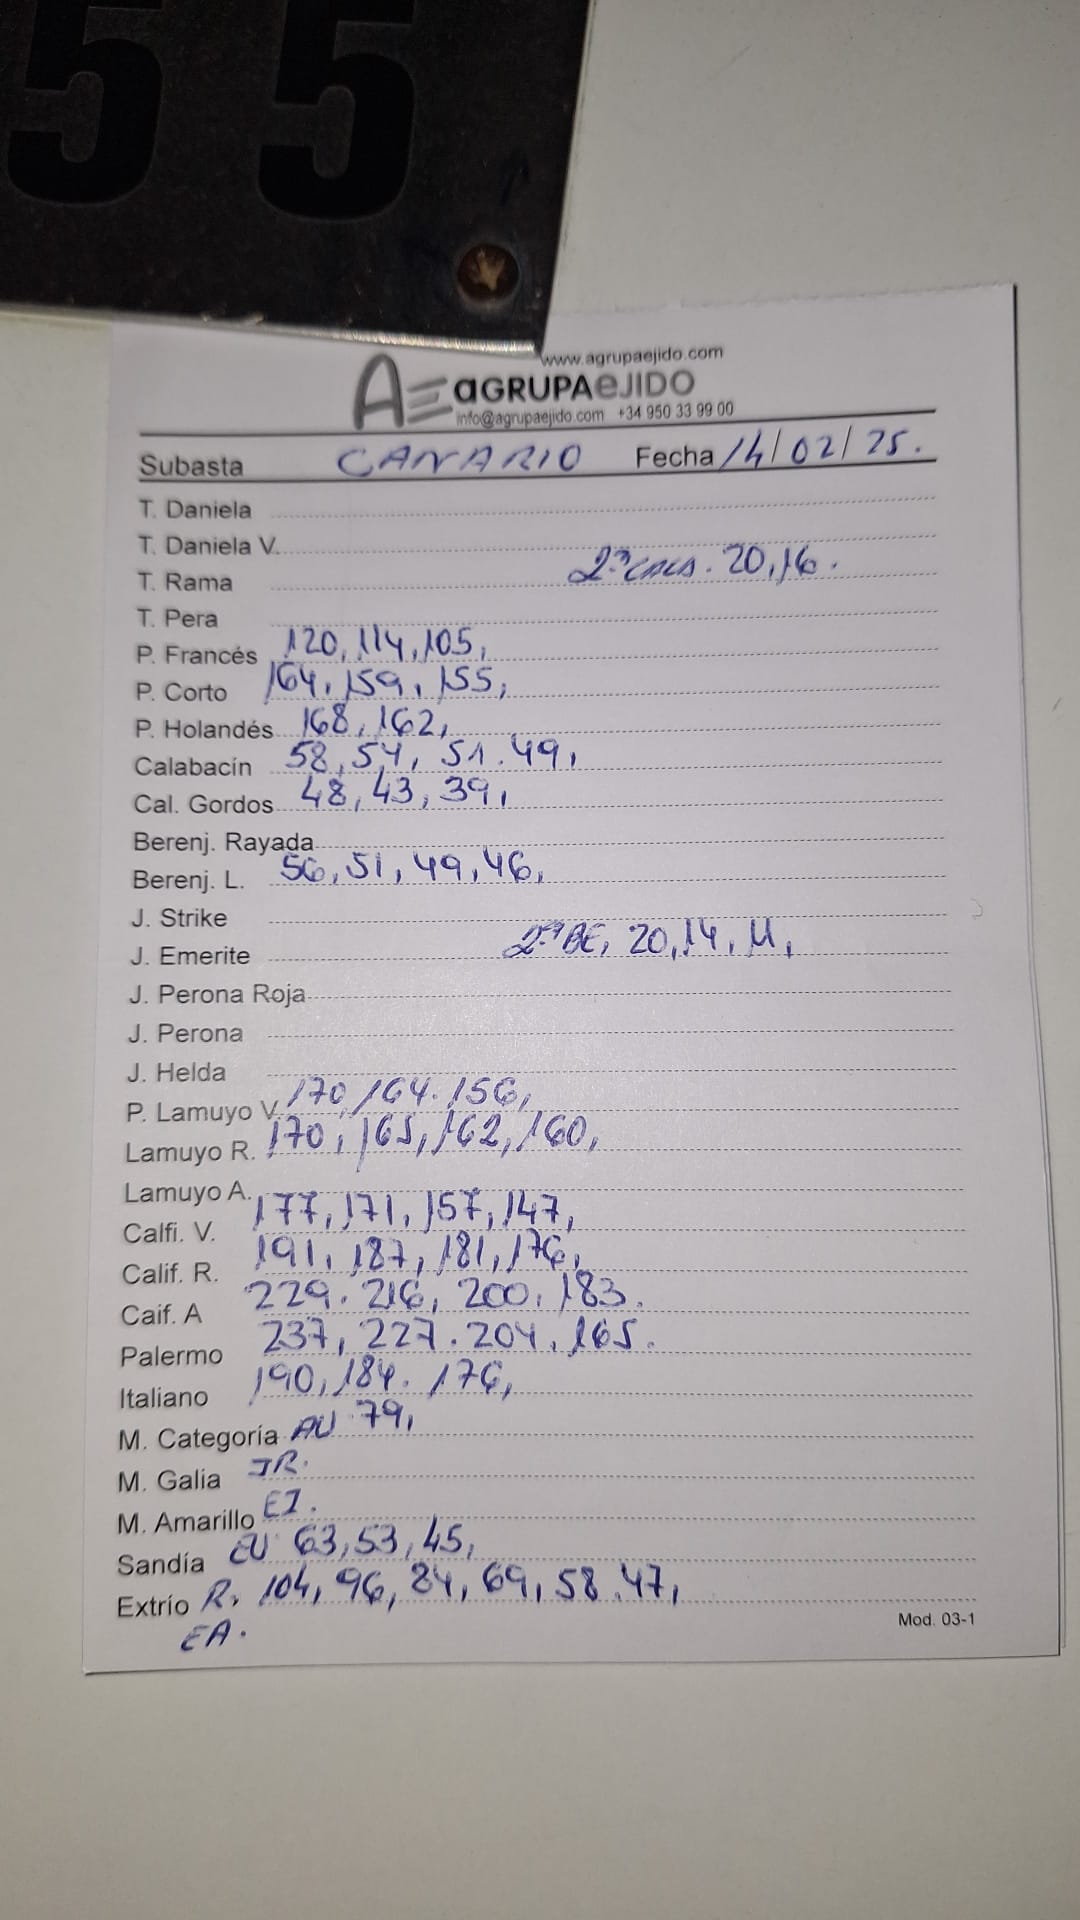 55
www.agrupaejido.com
AE aGRUPAeJIDO
info@agrupaejido.com +34 950 33 99 00
Subasta CANARIO Fecha 14/02/25.
T. Daniela
T. Daniela V.
T. Rama 2ª CALA. 20,16.
T. Pera
P. Francés 120, 114, 105,
P. Corto 164, 159, 155,
P. Holandés 168, 162,
Calabacín 58, 54, 51. 49,
Cal. Gordos 48, 43, 39,
Berenj. Rayada
Berenj. L. 56, 51, 49, 46,
J. Strike
J. Emerite 2ª BE, 20, 14, 11,
J. Perona Roja
J. Perona
J. Helda
P. Lamuyo V. 170, 164. 156,
Lamuyo R. 170, 165, 162, 160,
Lamuyo A.
Calfi. V. 177, 171, 157, 147,
Calif. R. 191, 187, 181, 176,
Caif. A 229. 216, 200, 183.
Palermo 237, 227. 204, 165.
Italiano 190, 184. 176,
M. Categoría AU 79,
M. Galia JR.
M. Amarillo EJ.
Sandía EU 63, 53, 45,
Extrío R, 104, 96, 84, 69, 58. 47,
EA.
Mod. 03-1